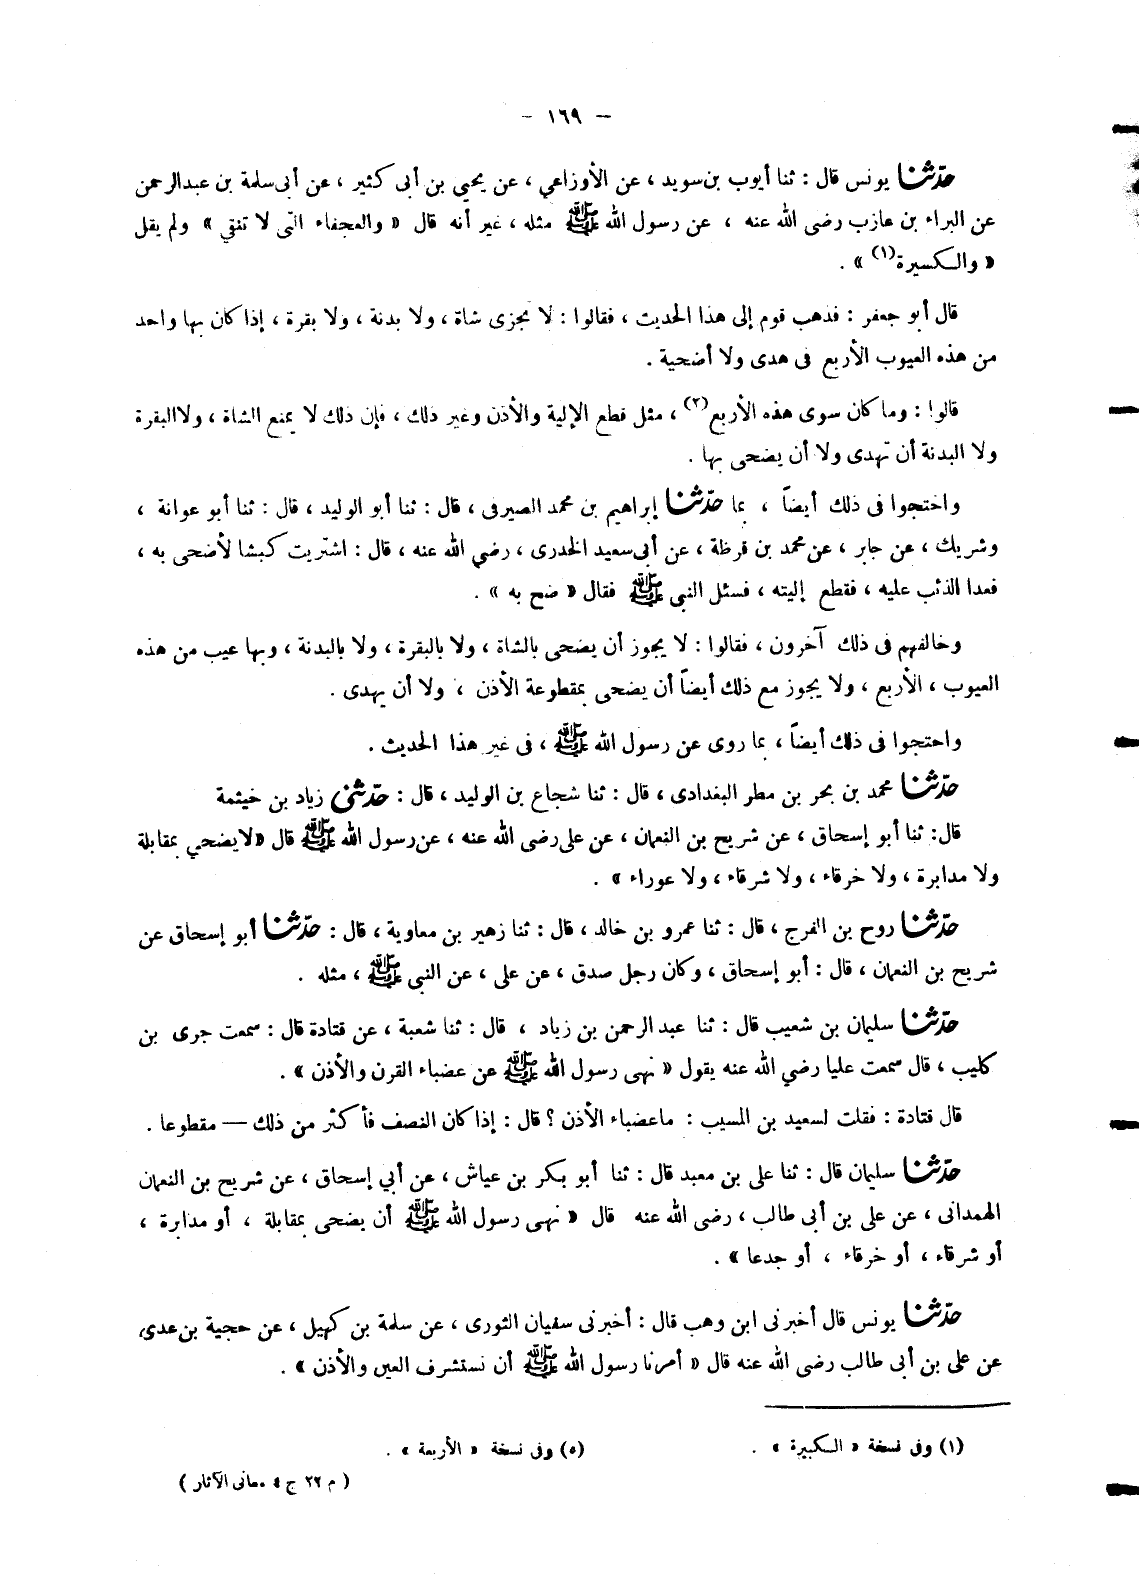 — ١٦٩ —
حدثنا يونس قال : ثنا أيوب بن سويد ، عن الأوزاعي ، عن يحيى بن أبى كثير ، عن أبى سلمة بن عبد الرحمن
عن البراء بن عازب رضى الله عنه ، عن رسول الله ﷺ مثله ، غير أنه قال « والعجفاء التى لا تنقي » ولم يقل
« والكسيرة(١) » .
قال أبو جعفر : فذهب قوم إلى هذا الحديث ، فقالوا : لا يجزى شاة ، ولا بدنة ، ولا بقرة ، إذا كان بها واحد
من هذه العيوب الأربع فى هدى ولا أضحية .
قالوا : وما كان سوى هذه الأربع(٢) ، مثل قطع الإلية والأذن وغير ذلك ، فإن ذلك لا يمنع الشاة ، ولا البقرة
ولا البدنة أن تهدى ولا أن يضحى بها .
واختجوا فى ذلك أيضاً ، بما حدثنا إبراهيم بن محمد الصيرفى ، قال : ثنا أبو الوليد ، قال : ثنا أبو عوانة ،
وشريك ، عن جابر ، عن محمد بن قرظة ، عن أبى سعيد الخدرى ، رضي الله عنه ، قال : اشتريت كبشا لأضحى به ،
فعدا الذئب عليه ، فقطع إليته ، فسئل النبى ﷺ فقال « ضح به » .
وخالفهم فى ذلك آخرون ، فقالوا : لا يجوز أن يضحى بالشاة ، ولا بالبقرة ، ولا بالبدنة ، وبها عيب من هذه
العيوب ، الأربع ، ولا يجوز مع ذلك أيضاً أن يضحى بمقطوعة الأذن ، ولا أن يهدى .
واحتجوا فى ذلك أيضاً ، بما روى عن رسول الله ﷺ ، فى غير هذا الحديث .
حدثنا محمد بن بحر بن مطر البغدادى ، قال : ثنا شجاع بن الوليد ، قال : حدثنى زياد بن خيثمة
قال: ثنا أبو إسحاق ، عن شريح بن النعمان ، عن على رضى الله عنه ، عن رسول الله ﷺ قال « لا يضحي بمقابلة
ولا مدابرة ، ولا خرقاء ، ولا شرقاء ، ولا عوراء » .
حدثنا روح بن الفرج ، قال : ثنا عمرو بن خالد ، قال : ثنا زهير بن معاوية ، قال : حدثنا أبو إسحاق عن
شريح بن النعمان ، قال : أبو إسحاق ، وكان رجل صدق ، عن على ، عن النبى ﷺ ، مثله .
حدثنا سليمان بن شعيب قال : ثنا عبد الرحمن بن زياد ، قال : ثنا شعبة ، عن قتادة قال : سمعت جرى بن
كليب ، قال سمعت عليا رضي الله عنه يقول « نهى رسول الله ﷺ عن عضباء القرن والأذن » .
قال قتادة : فقلت لسعيد بن المسيب : ما عضباء الأذن ؟ قال : إذا كان النصف فأكثر من ذلك — مقطوعا .
حدثنا سليمان قال : ثنا على بن معبد قال : ثنا أبو بكر بن عياش ، عن أبي إسحاق ، عن شريح بن النعمان
الهمدانى ، عن على بن أبى طالب ، رضى الله عنه قال « نهى رسول الله ﷺ أن يضحى بمقابلة ، أو مدابرة ،
أو شرقاء ، أو خرقاء ، أو جدعا » .
حدثنا يونس قال أخبرنى ابن وهب قال : أخبرنى سفيان الثورى ، عن سلمة بن كهيل ، عن حجية بن عدى
عن على بن أبى طالب رضى الله عنه قال « أمرنا رسول الله ﷺ أن نستشرف العين والأذن » .
(١) وفى نسخة « الكبيرة » . (٥) وفى نسخة « الأربعة » .
( م ٢٢ ج ٤ معانى الآثار )